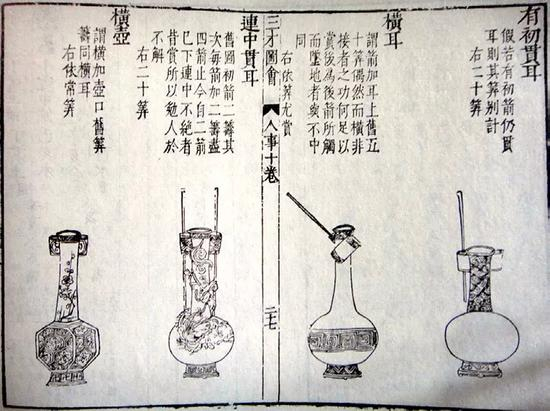 有初貫耳
假若有初箭仍貫
耳則其筭別計
右二十筭
橫耳
謂箭加耳上舊五
十筭偶然而橫非
接者之功何足以
賞後為後箭所觸
而墜地者與不中
同
右依筭尤賞
三才圖會
人事十卷
二七
連中貫耳
舊圖初箭二籌其
次每箭加二籌盡
四箭止今自二箭
已下連中不絕者
皆賞所以勉人於
不解
右二十筭
橫壺
謂橫加壺口舊筭
籌同橫耳
右依常筭